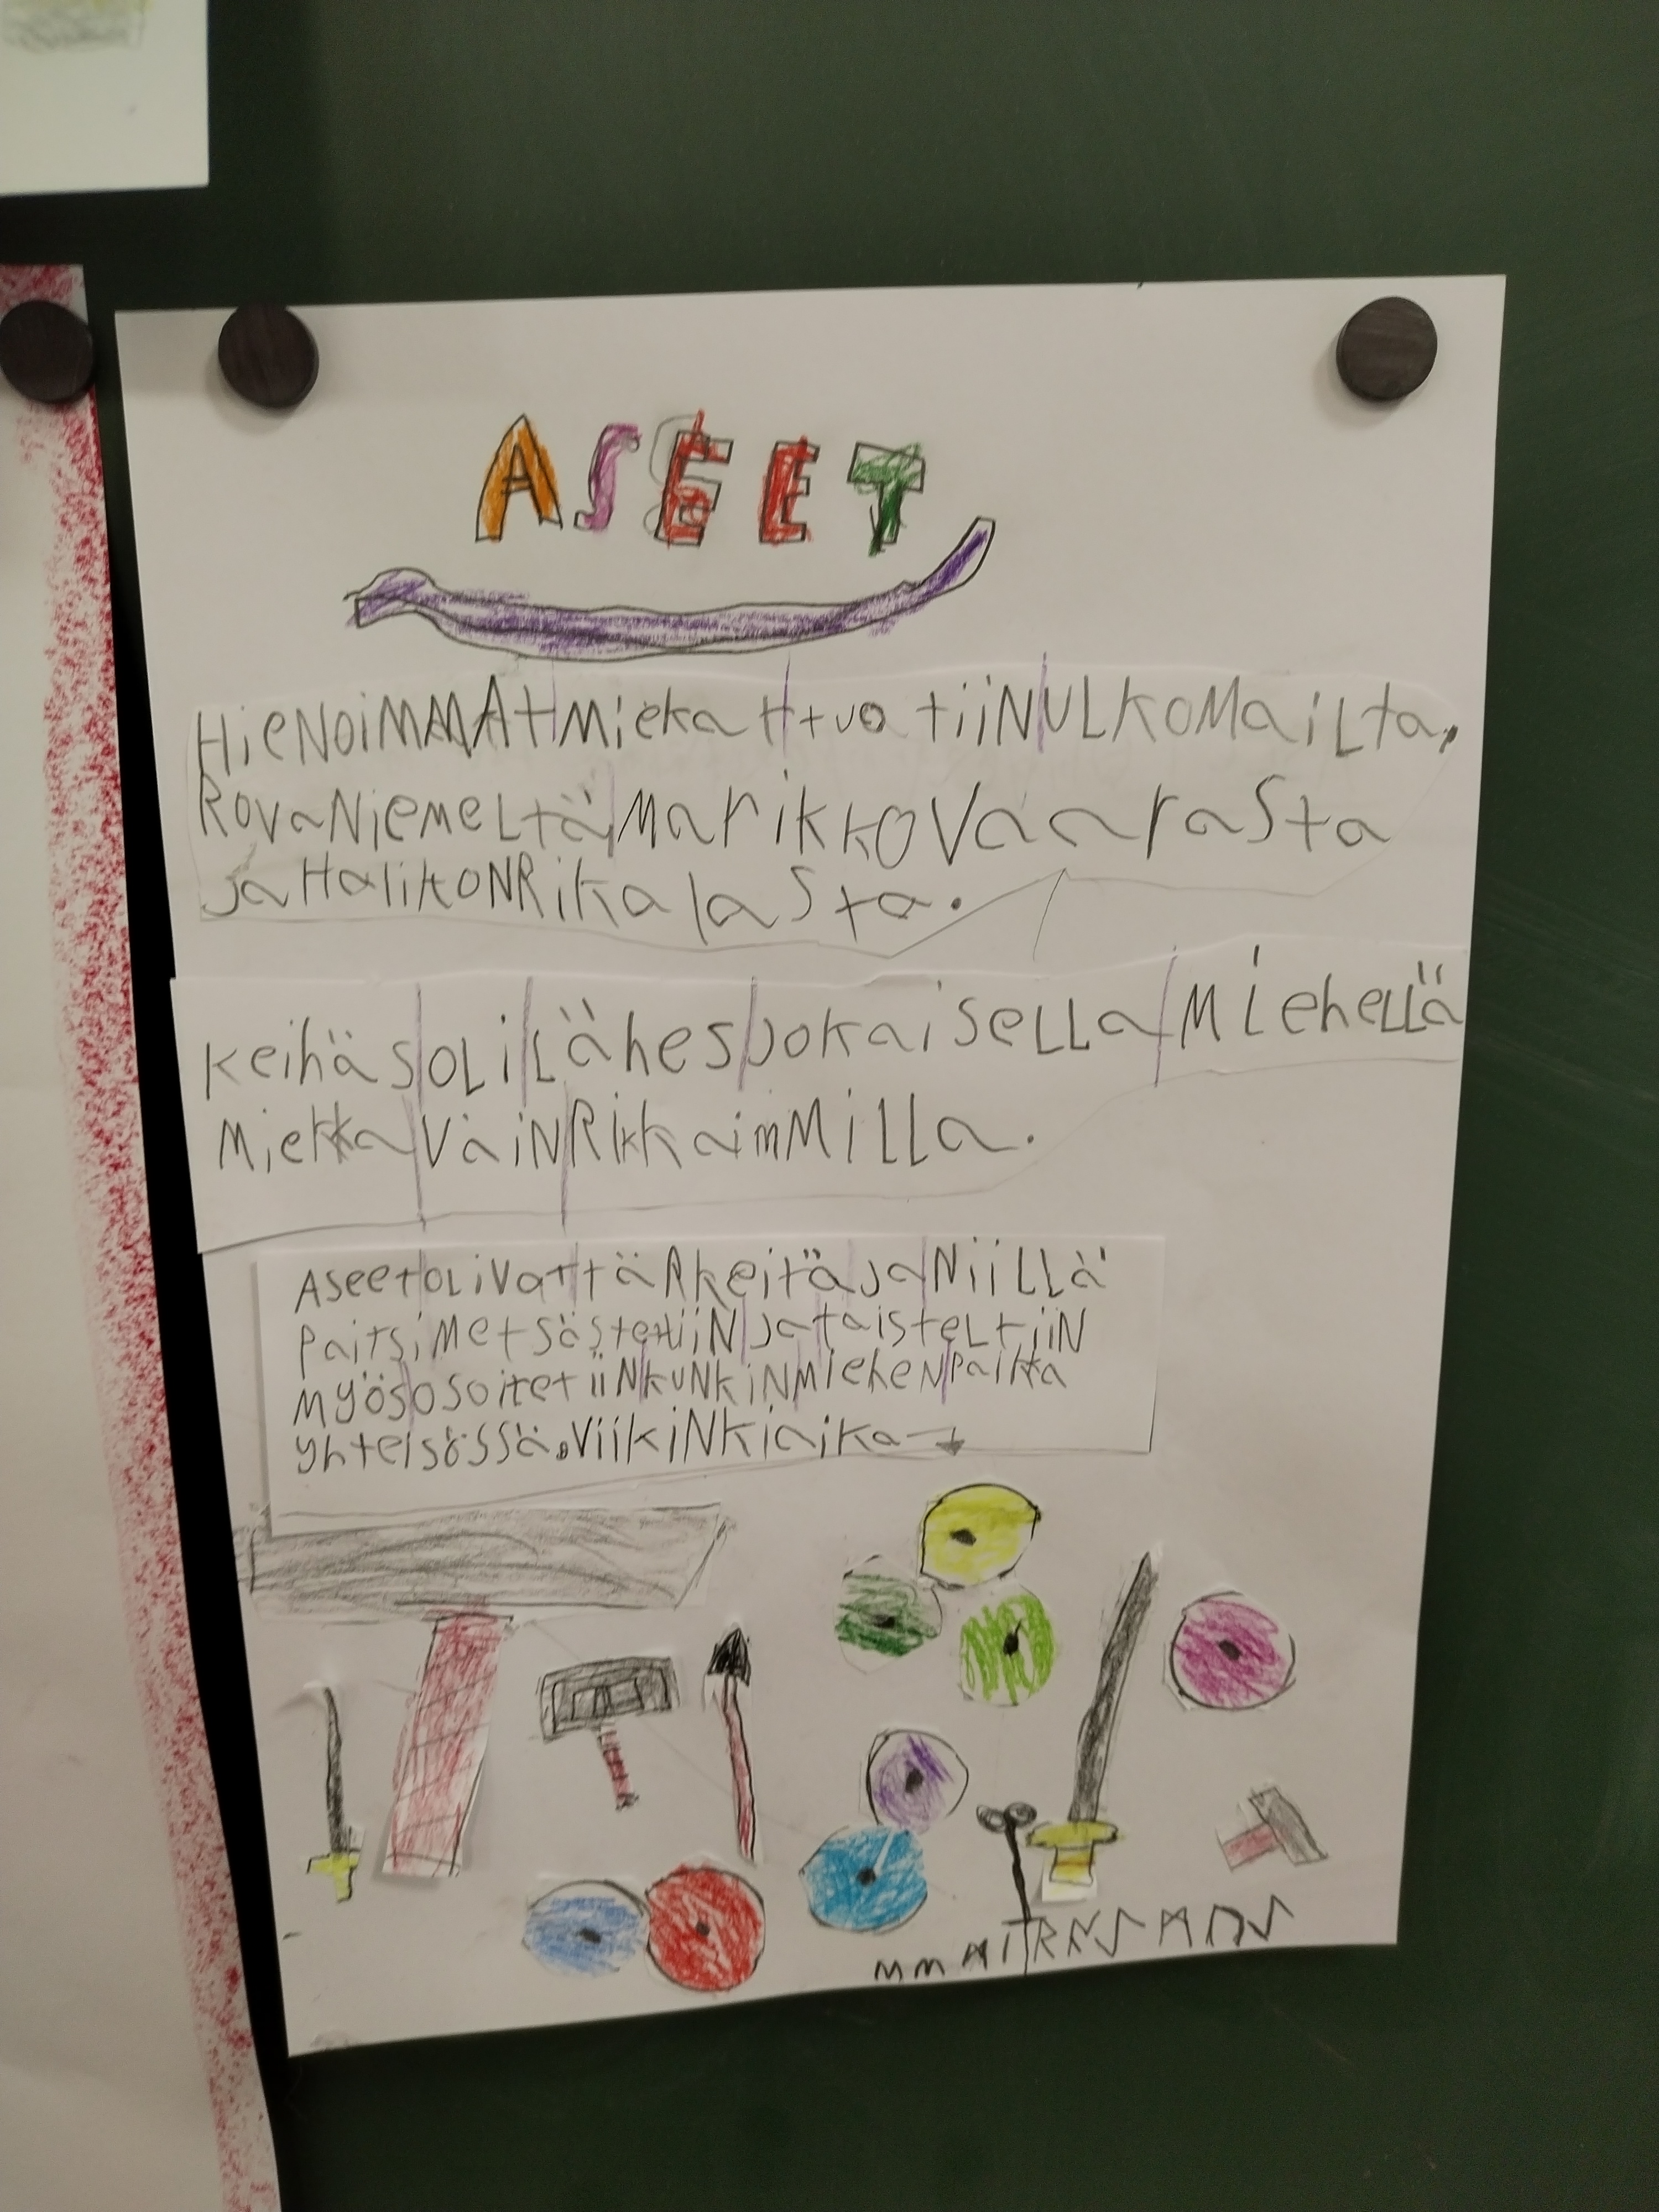 ASEET
HieNoiMMAt Miekat tuotiiN ULKOMaiLta.
RovaNiemeLtä MarikkoVaarasta
ja HalikoNRikalasta.
keihäs OLi Lähes jokaiseLLa MiEheLLä
Miekka VaiN Rikkaimmilla.
Aseet OLiVat täRkeitä ja NiiLLä
paitsi MetsästettiiN ja taisteLtiiN
myös osoitetiiN kuNkiN miehen paikka
yhteisössä. ViikiNkiaika